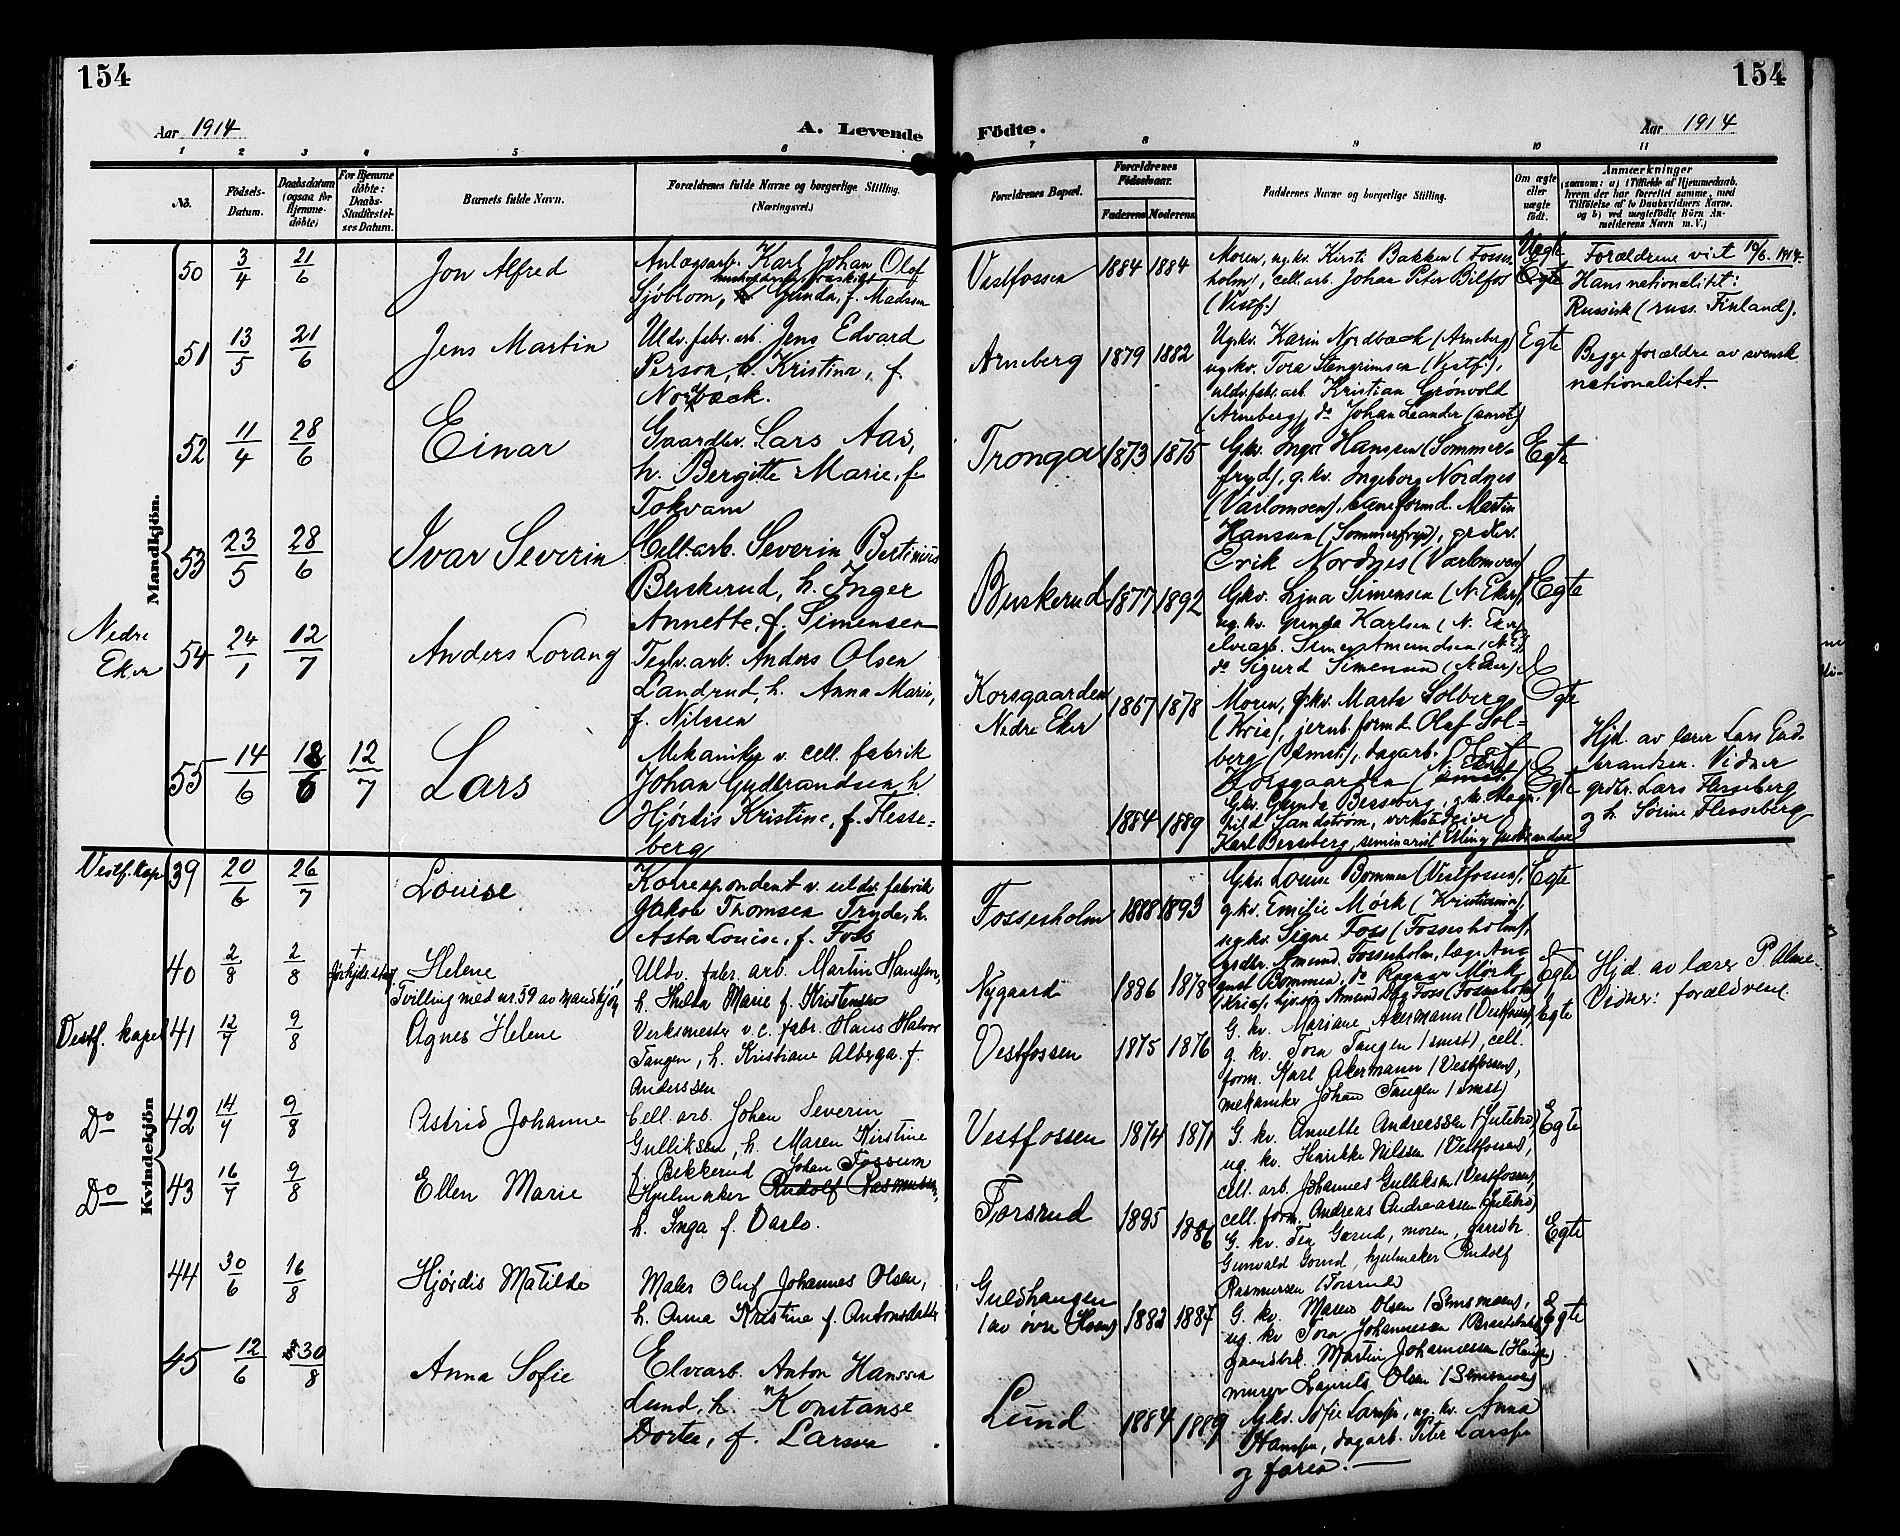 154
154
Aar 1914
A. Levende Födte.
Aar 1914
1 2 3 4 5 6 7 8 9 10 11
No.
Födsels-Datum.
Daabsdatum (ogsaa for Hjemmedöbte)
For Hjemmedöbte: Daabs-Stadfæstelses Datum.
Barnets fulde Navn.
Forældrenes fulde Navne og borgerlige Stilling.
(Næringsvei.)
Forældrenes Bopæl.
Forældrenes Födselsaar.
Faderens
Moderens
Faddernes Navne og borgerlige Stilling.
Om ægte eller uægte födt.
Anmærkninger
(saasom: a) i Tilfælde af Hjemmedaab, hvem der har forrettet samme, med Tilföielse af to Daabsvidners Navne, og b) ved uegtefödte Börn Anmelderens Navn m. V.)
Mandkjön.
50 3/4 21/6
Jon Alfred
Anlægsarb. Karl Johan Olof
Sjöblom, Gunda, f. Madsen
Vestfossen 1884 1884
Moren, ug.kv. Kirsti Bakken (Fosses-
holm), cell.arb. Johan Peter Bilfos
(Vestf.)
Uegte
Egte
Forældrene viet 10/6. 1914.
Hans nationalitet:
Russisk (russ. Finland).
51 13/5 21/6
Jens Martin
Uldv.fabr.arb. Jens Edvard
Person, h. Kristina, f.
Nordback.
Arneberg 1879 1882
Ug.kv. Karin Nordback (Arneberg)
ug.kv. Tora Stengrimsen (Vestf.),
uldv.fabr.arb. Kristian Grönvold
(Arneberg), do Johan Leander (smst)
Egte
Begge forældre av svensk
nationalitet.
52 11/4 28/6
Einar
Gaardbr. Lars Aas,
h. Bergitte Marie, f.
Tokvam
Tronga 1873 1875
G.kv. Inga Hanssen (Sommer-
fryd), g.kv. Ingeborg Nordnes
(Varlomoen), baneformd. Martin
Hanssen (Sommerfryd), grdbr.
Erik Nordnes (Varlomoen)
Egte
53 23/5 28/6
Ivar Severin
Cell.arb. Severin Bertinius
Buskerud, h. Inger
Annette, f. Simensen
Buskerud 1877 1892
G.kv. Lina Simensen (N. Eker)
ug.kv. Gunda Karlsen (N. Eker)
elvearb. Simen Amundsen (N.E)
do Sigurd Simensen (N.Eker).
Egte
Nedre
Eker
54 24/1 12/7
Anders Lorang
Teglv.arb. Anders Olsen
Landrud, h. Anna Marie,
f. Nilssen
Korsgaarden
Nedre Eker
1867 1878
Moren, g.kv. Marta Solberg
(Kria), jernb.formd. Olaf Sol-
berg (smst.), dagarb. Olaf
Korsgaarden (N. Eker)
Egte
55 14/6 18/6 12/7
Lars
Mekaniker v. cell. fabrik
Johan Gudbrandsen, h.
Hjørdis Kristine, f. Flesse-
berg
1884 1889
G.kv. Gunda Besseberg, g.kv. Magn-
hild Sandström, verkstedeier
Karl Besseberg, seminarist Erling Gudbrandsen
Egte
Hjd. av lærer Lars Gud-
brandsen. Vidner
grdbr. Lars Flesseberg
og h. Sörine Flesseberg
Kvindekjön
Vestf. kapel
39 20/6 26/7
Louise
Korrespondent v. uldv.fabrik
Jakob Thomsen Tryde, h.
Asta Louise, f. Foss
Fossesholm 1888 1893
G.kv. Louise Bommen (Vestfossen),
g.kv. Emilie Mörk (Kristiania),
ug.kv. Signe Foss (Fossesholm),
grdbr. Amund Fossesholm, læge Aug-
ust Bommen, do Ragnar Mörk
(Kria), Amund Foss (Fossesholm)
Egte
40 2/8 2/8
Helene
Tvilling med nr. 59 av mandkjön
Uldv. fabr. arb. Martin Hansen,
h. Hulda Marie f. Kristensen
Nygaard 1886 1878
Egte
Hjd. av lærer P. Alme.
Vidner: forældrene.
Vestf. kapel
41 12/7 9/8
Agnes Helene
Verksmester v. c. fabr. Hans Halvor
Tangen, h. Kristiane Alberga f.
Anderssen
Vestfossen 1875 1876
G. kv. Mariane Akermann (Vestfossen),
g. kv. Tora Tangen (smst), cell.
form. Karl Akermann (Vestfossen),
mekaniker Johan Tangen (smst)
Egte
Do
42 14/7 9/8
Astrid Johanne
Cell. arb. Johan Severin
Gulliksen, h. Maren Kirstine
f. Bekkerud
Vestfossen 1874 1871
G. kv. Annette Andreassen (Jutebo)
ug. kv. Henrikke Nilssen (Vestfossen),
cell. arb. Johannes Gulliksen (Vestfossen),
cell. form. Andreas Andreassen (Jutebo)
Egte
Do
43 16/7 9/8
Ellen Marie
Johan Fossum
Hjulmaker Rudolf Rasmussen,
h. Inga f. Varlo.
Forsrud 1895 1886
G. kv. Tea Gorud, moren, gaardbr.
Gunvald Gorud, hjulmaker Rudolf
Rasmussen (Forsrud)
Egte
44 30/6 16/8
Hjørdis Matilde
Maler Oluf Johannes Olsen,
h. Anna Kristine f. Antonsdatter
Guldhaugen
(av övre Hoen)
1882 1887
G. kv. Maren Olsen (Semsmoen),
ug. kv Tora Johannessen
gaardbr. Martin Johannessen
murer Laurits Olsen (Semsmoen)
Egte
45 12/6 30/8
Anna Sofie
Elvearb. Anton Hanssen
Lund, h. Konstanse
Dortea, f. Larsen
Lund 1884 1889
G.kv. Sofie Larsen, ug. kv. Anna
Hansen, dagarb. Peter Larsen
og faren.